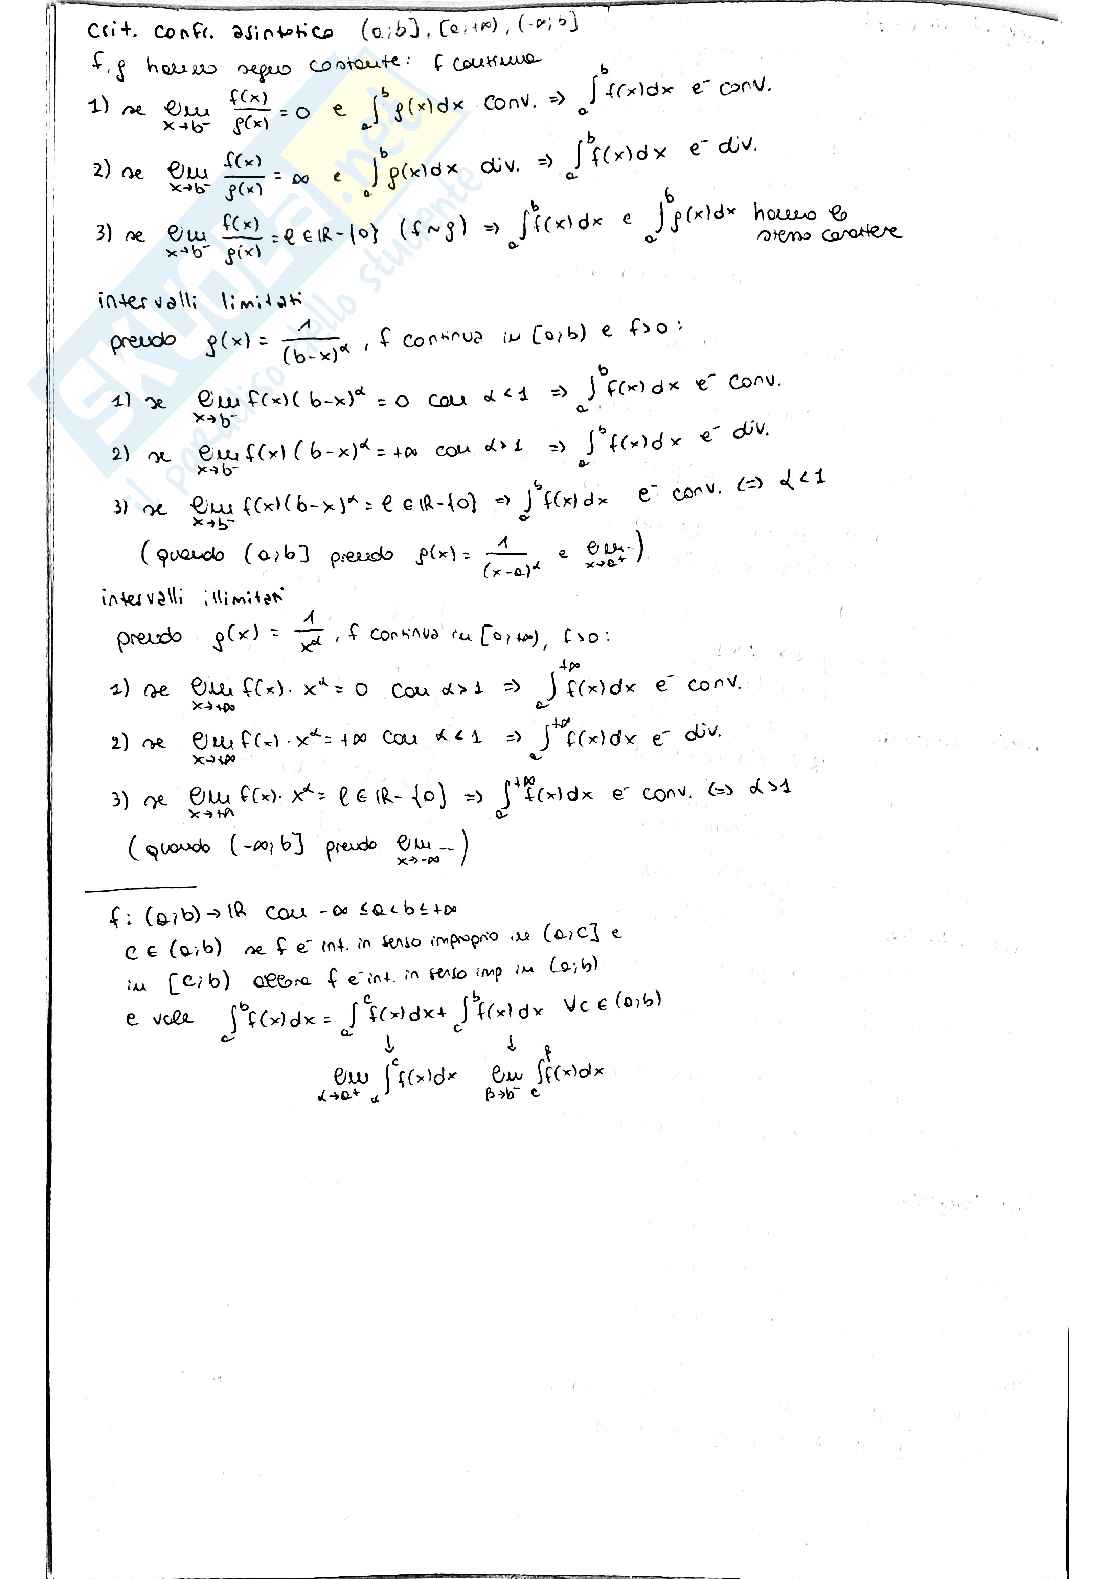 Crit. confr. asintotico (a;b], [a;+∞), (-∞;b]
f, g hanno segno costante: f continua
1) se lim x→b⁻ f(x)/g(x) = 0 e ∫ₐᵇ g(x)dx conv. => ∫ₐᵇ f(x)dx e⁻ conv.
2) se lim x→b⁻ f(x)/g(x) = ∞ e ∫ₐᵇ g(x)dx div. => ∫ₐᵇ f(x)dx e⁻ div.
3) se lim x→b⁻ f(x)/g(x) = ℓ ∈ ℝ-{0} (f~g) => ∫ₐᵇ f(x)dx e ∫ₐᵇ g(x)dx hanno lo
stesso carattere
intervalli limitati
prendo g(x) = 1/(b-x)^α, f continua in [a;b) e f>0:
1) se lim x→b⁻ f(x)(b-x)^α = 0 con α<1 => ∫ₐᵇ f(x)dx e⁻ conv.
2) se lim x→b⁻ f(x)(b-x)^α = +∞ con α>1 => ∫ₐᵇ f(x)dx e⁻ div.
3) se lim x→b⁻ f(x)(b-x)^α = ℓ ∈ ℝ-{0} => ∫ₐᵇ f(x)dx e⁻ conv. <=> α<1
(quando (a;b] prendo g(x) = 1/(x-a)^α e lim x→a⁺ ..)
intervalli illimitati
prendo g(x) = 1/x^α, f continua in [a;+∞), f>0:
1) se lim x→+∞ f(x)·x^α = 0 con α>1 => ∫ₐ^+∞ f(x)dx e⁻ conv.
2) se lim x→+∞ f(x)·x^α = +∞ con α<1 => ∫ₐ^+∞ f(x)dx e⁻ div.
3) se lim x→+∞ f(x)·x^α = ℓ ∈ ℝ-{0} => ∫ₐ^+∞ f(x)dx e⁻ conv. <=> α>1
(quando (-∞;b] prendo lim x→-∞ ...)
f: (a;b)→ℝ con -∞ ≤ a < b ≤ +∞
c ∈ (a;b) se f e⁻ int. in senso improprio in (a;c] e
in [c;b) allora f e⁻ int. in senso imp in (a;b)
e vale ∫ₐᵇ f(x)dx = ∫ₐᶜ f(x)dx + ∫꜀ᵇ f(x)dx ∀c ∈ (a;b)
↓ ↓
lim α→a⁺ ∫_α^c f(x)dx lim β→b⁻ ∫_c^β f(x)dx
SKUOLA.net
il paradiso dello studente